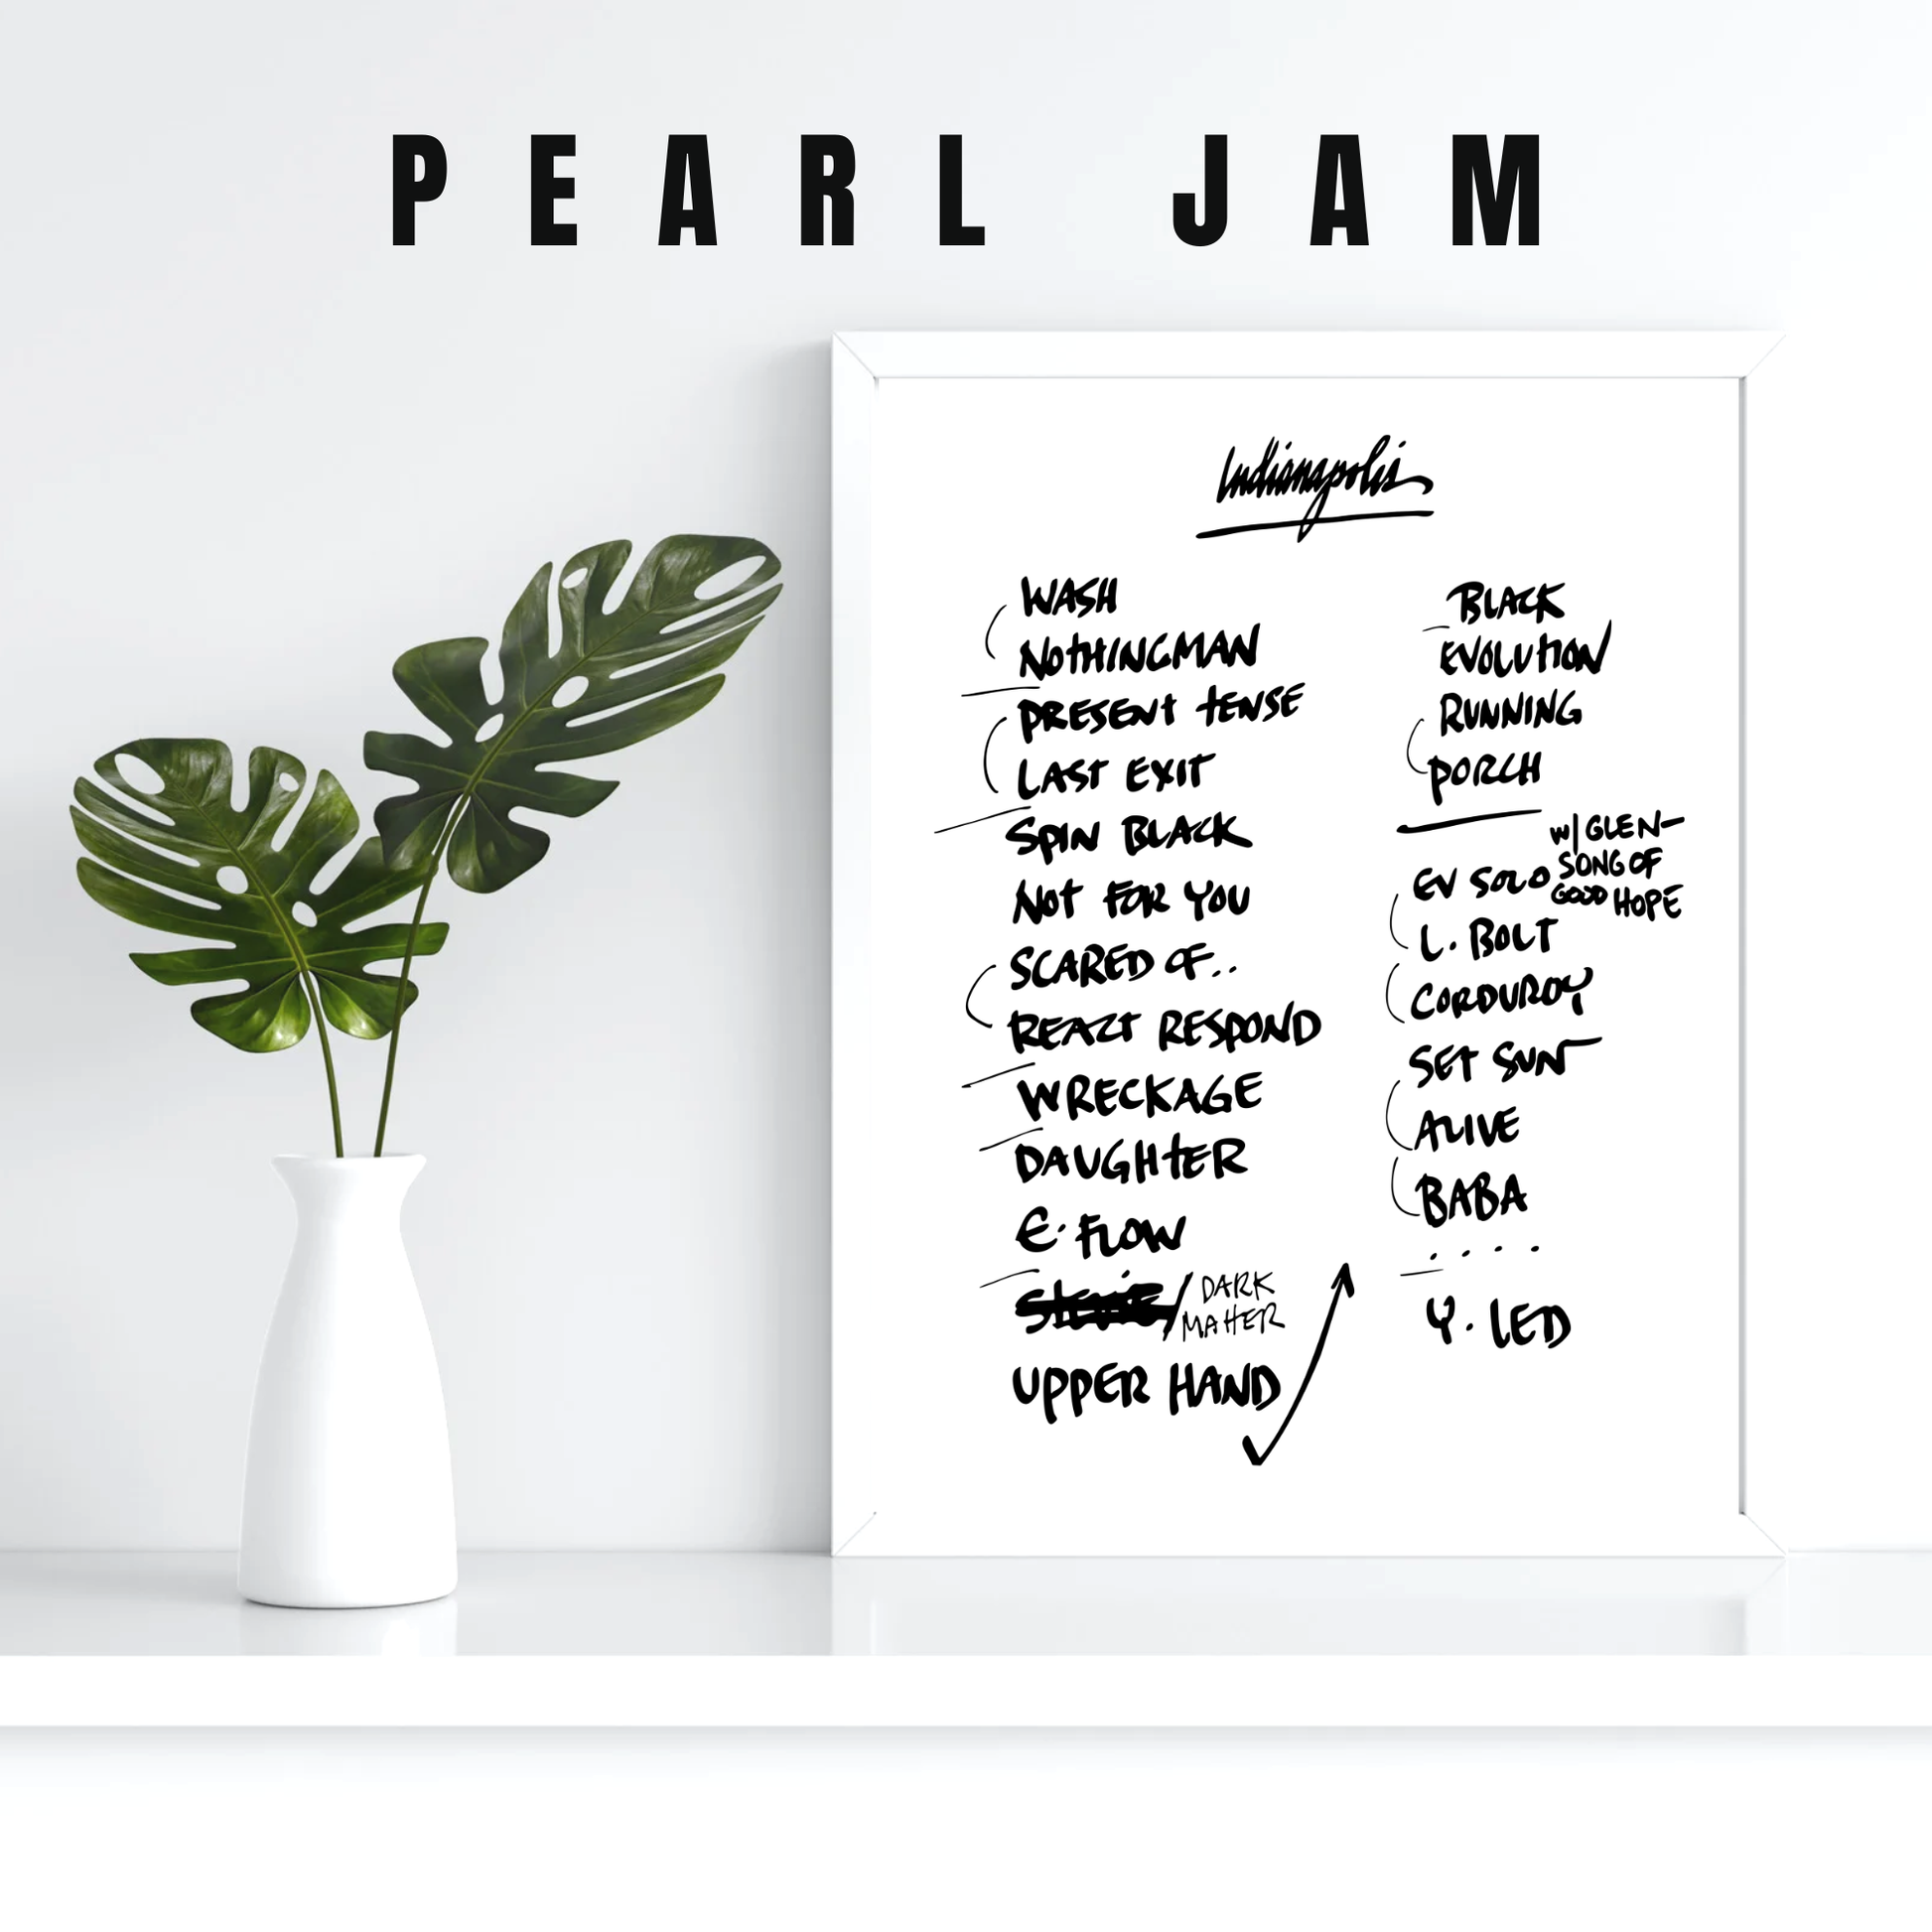 PEARL JAM
Indianapolis
WASH
NOTHINGMAN
PRESENT TENSE
LAST EXIT
SPIN BLACK
NOT FOR YOU
SCARED OF..
REACT RESPOND
WRECKAGE
DAUGHTER
E. FLOW
/ DARK
MATTER
UPPER HAND
BLACK
EVOLUTION
RUNNING
PORCH
EV SOLO
W/ GLEN-
SONG OF
GOOD HOPE
L. BOLT
CORDUROY
SET SUN
ALIVE
BABA
....
Y. LED